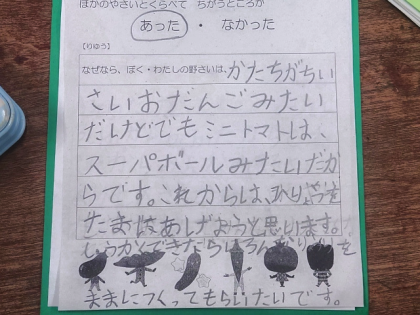 ほかのやさいとくらべて ちがうところが
あった ・ なかった
【りゆう】
なぜなら、ぼく・わたしの野さいは、かたちがちい
さいおだんごみたい
だけどでもミニトマトは、
スーパボールみたいだか
らです。これからは、
をたまにあげようと思います。
しゅうかくできたらいろんな
を
ままにつくってもらいたいです。